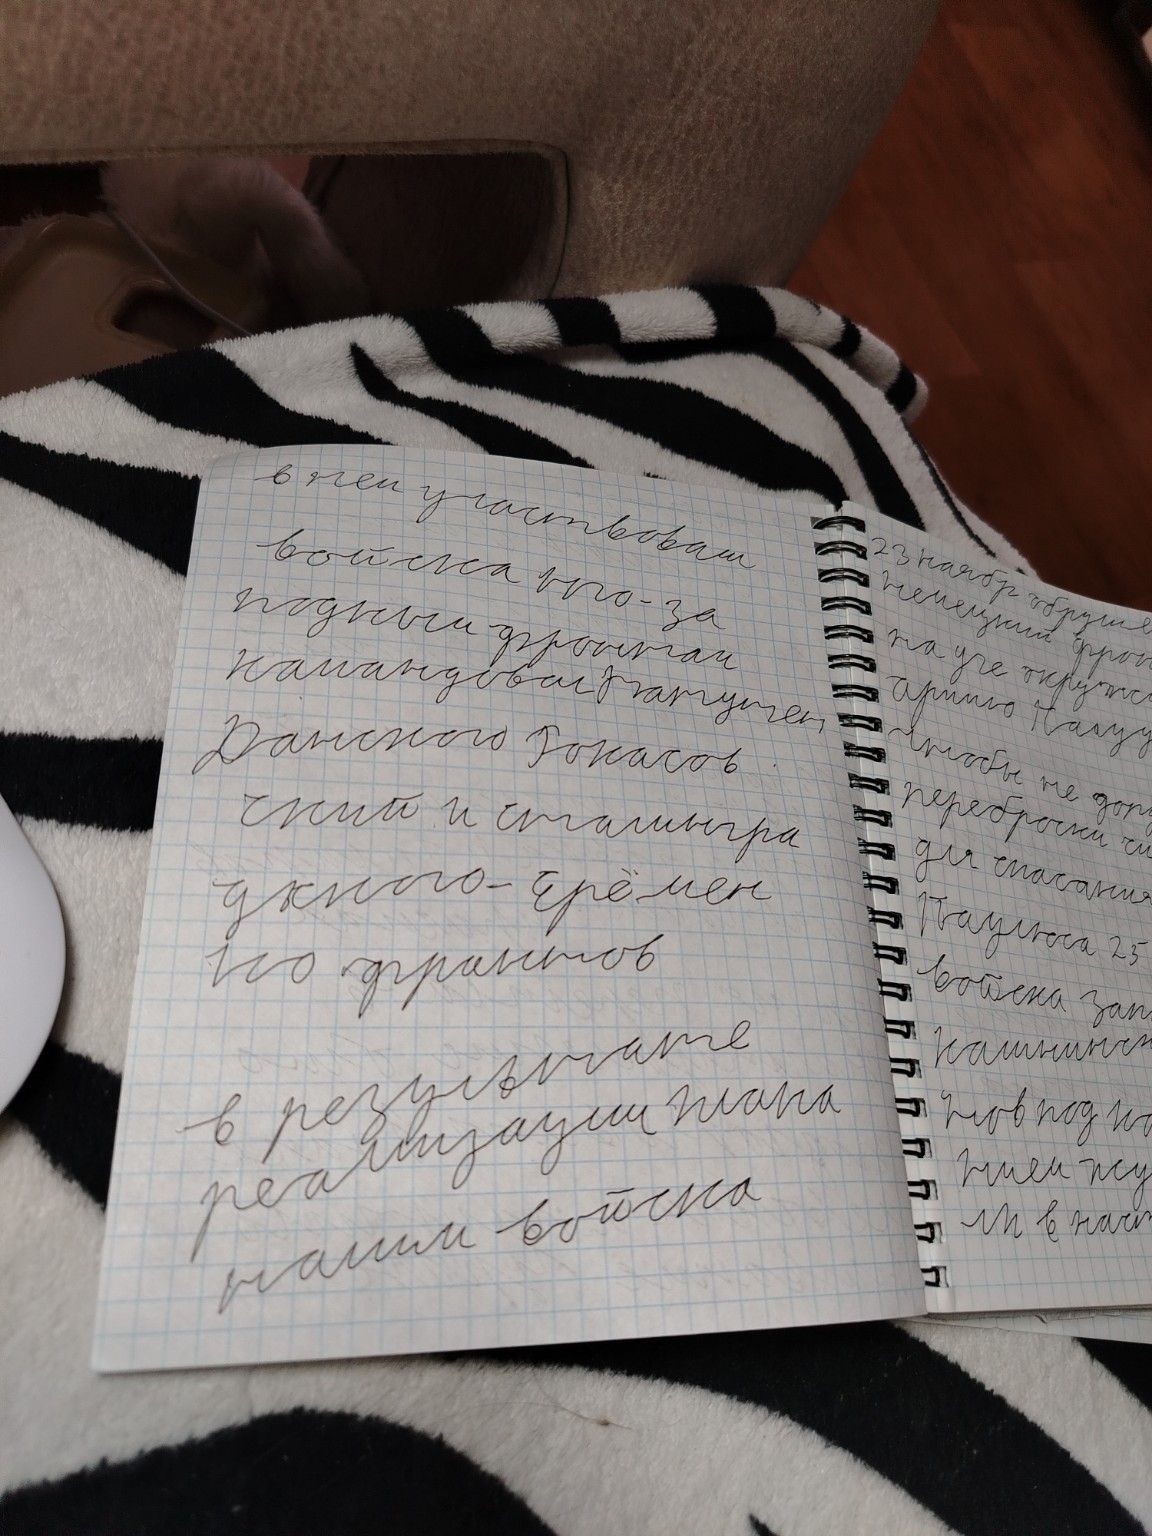 в неи участвовали
войска юго-за
подными фронтам
камандовал Ватутен,
Данского Рокасов
ский и сталингра
дкного- Ерёмен
ко франтов
в результате
реализации плана
наши войска
23 ноябр обруше
немецкий фрон
на уге окружи
армию Паулу
Чтобы не допу
переброски си
для спасания
Паулюса 25
войска зап
калининск
тов под ко
нием жу
ли в наст